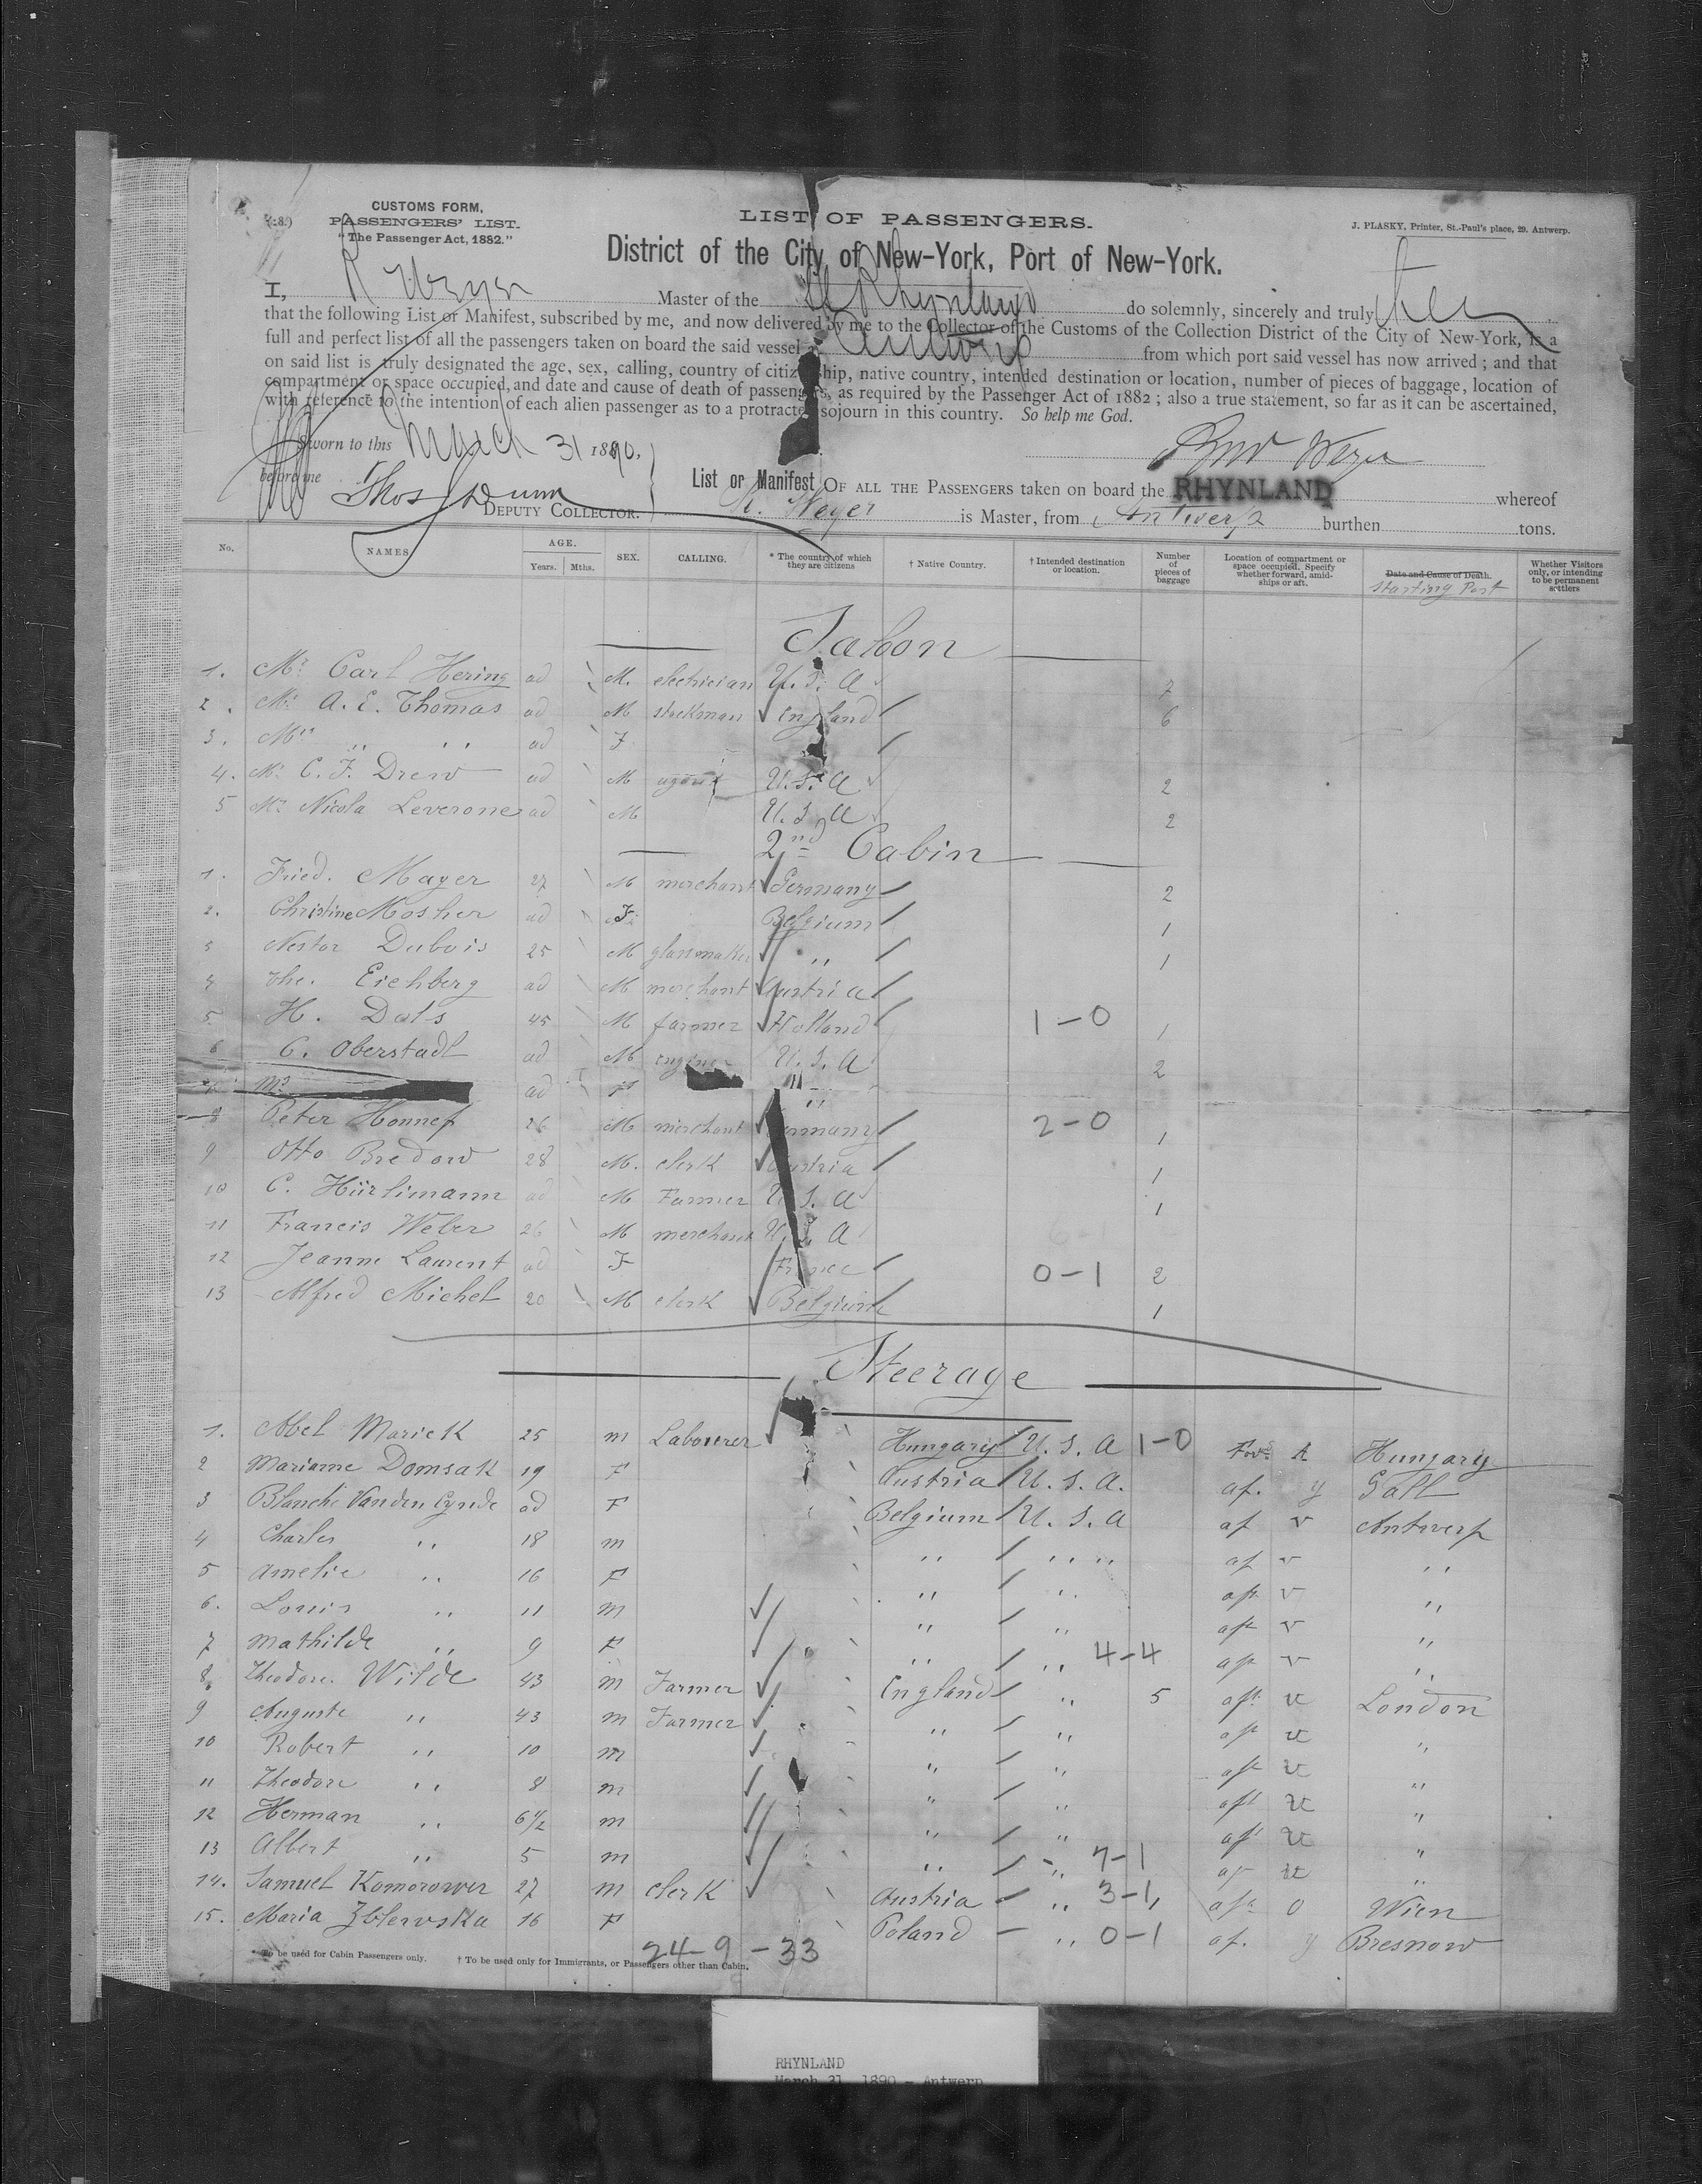 CUSTOMS FORM,
PASSENGERS' LIST.
"The Passenger Act, 1882."
LIST OF PASSENGERS.
J. PLASKY, Printer, St.-Paul's place, 29. Antwerp.
District of the City of New-York, Port of New-York.
I, R Weyer Master of the SS Rhynland do solemnly, sincerely and truly
that the following List or Manifest, subscribed by me, and now delivered by me to the Collector of the Customs of the Collection District of the City of New-York, is a
full and perfect list of all the passengers taken on board the said vessel Antwerp from which port said vessel has now arrived ; and that
on said list is truly designated the age, sex, calling, country of citizenship, native country, intended destination or location, number of pieces of baggage, location of
compartment or space occupied, and date and cause of death of passengers, as required by the Passenger Act of 1882 ; also a true statement, so far as it can be ascertained,
with reference to the intention of each alien passenger as to a protracted sojourn in this country. So help me God.
Sworn to this March 31 1890,
before me
Thos Dunn
DEPUTY COLLECTOR.
Weyer
List or Manifest OF ALL THE PASSENGERS taken on board the RHYNLAND whereof
R. Weyer is Master, from Antwerp burthen tons.
No. NAMES AGE. Years. Mths. SEX. CALLING. * The country of which they are citizens † Native Country. † Intended destination or location. Number of pieces of baggage Location of compartment or space occupied. Specify whether forward, amidships or aft. Date and Cause of Death. Starting Port Whether Visitors only, or intending to be permanent settlers
Saloon
1. Mr Carl Hering ad M. electrician U. S. A 7
2. Mr A. E. Thomas ad M stockman England 6
3. Mrs " " ad F
4. Mr C. F. Drew ad M agent U. S. A 2
5 Mr Nicola Leverone ad M U. S. A 2
2nd Cabin
1. Fried. Mayer 27 M merchant Germany 2
2. Christine Mosher ad F Belgium 1
3 Nestor Dubois 25 M glassmaker " 1
4 The. Eichberg ad M merchant Austria
5. H. Dats 45 M farmer Holland 1-0 1
6 C. Oberstadt ad M U. S. A 2
7 Ms ad F "
8 Peter Honnef 26 M merchant Germany 2-0 1
9 Otto Bredow 28 M. clerk Austria 1
10 C. Hürlimann ad M Farmer U. S. A 1
11 Francis Weber 26 M merchant U. S. A
12 Jeanne Laurent ad F France 0-1 2
13 Alfred Michel 20 M clerk Belgium 1
Steerage
1. Abel Marick 25 m Labourer Hungary U. S. A 1-0 Hungary
2 Marianne Domsak 19 F Austria U. S. A. af. y Gall
3 Blanche Vanden Eynde ad F Belgium U. S. A af v Antwerp
4 Charles " 18 m " " " af v "
5 Amelie " 16 F " " aft v "
6. Louis " 11 m " " aft v "
7 Mathilde " 9 F " " 4-4 aft v "
8. Theodore Wilde 43 m Farmer England " 5 aft u London
9 Auguste " 43 m Farmer " " aft u "
10 Robert " 10 m " " aft u "
11 Theodore " 8 m " " aft u "
12 Herman " 6 1/2 m " " aft u "
13 Albert " 5 m " " 7-1 af u "
14. Samuel Komorower 27 m clerk Austria " 3-1 aft o Wien
15. Maria 16 F Poland " 0-1 af. y Bresnow
24-9-33
* To be used for Cabin Passengers only. † To be used only for Immigrants, or Passengers other than Cabin.
RHYNLAND
March 31, 1890 - Antwerp